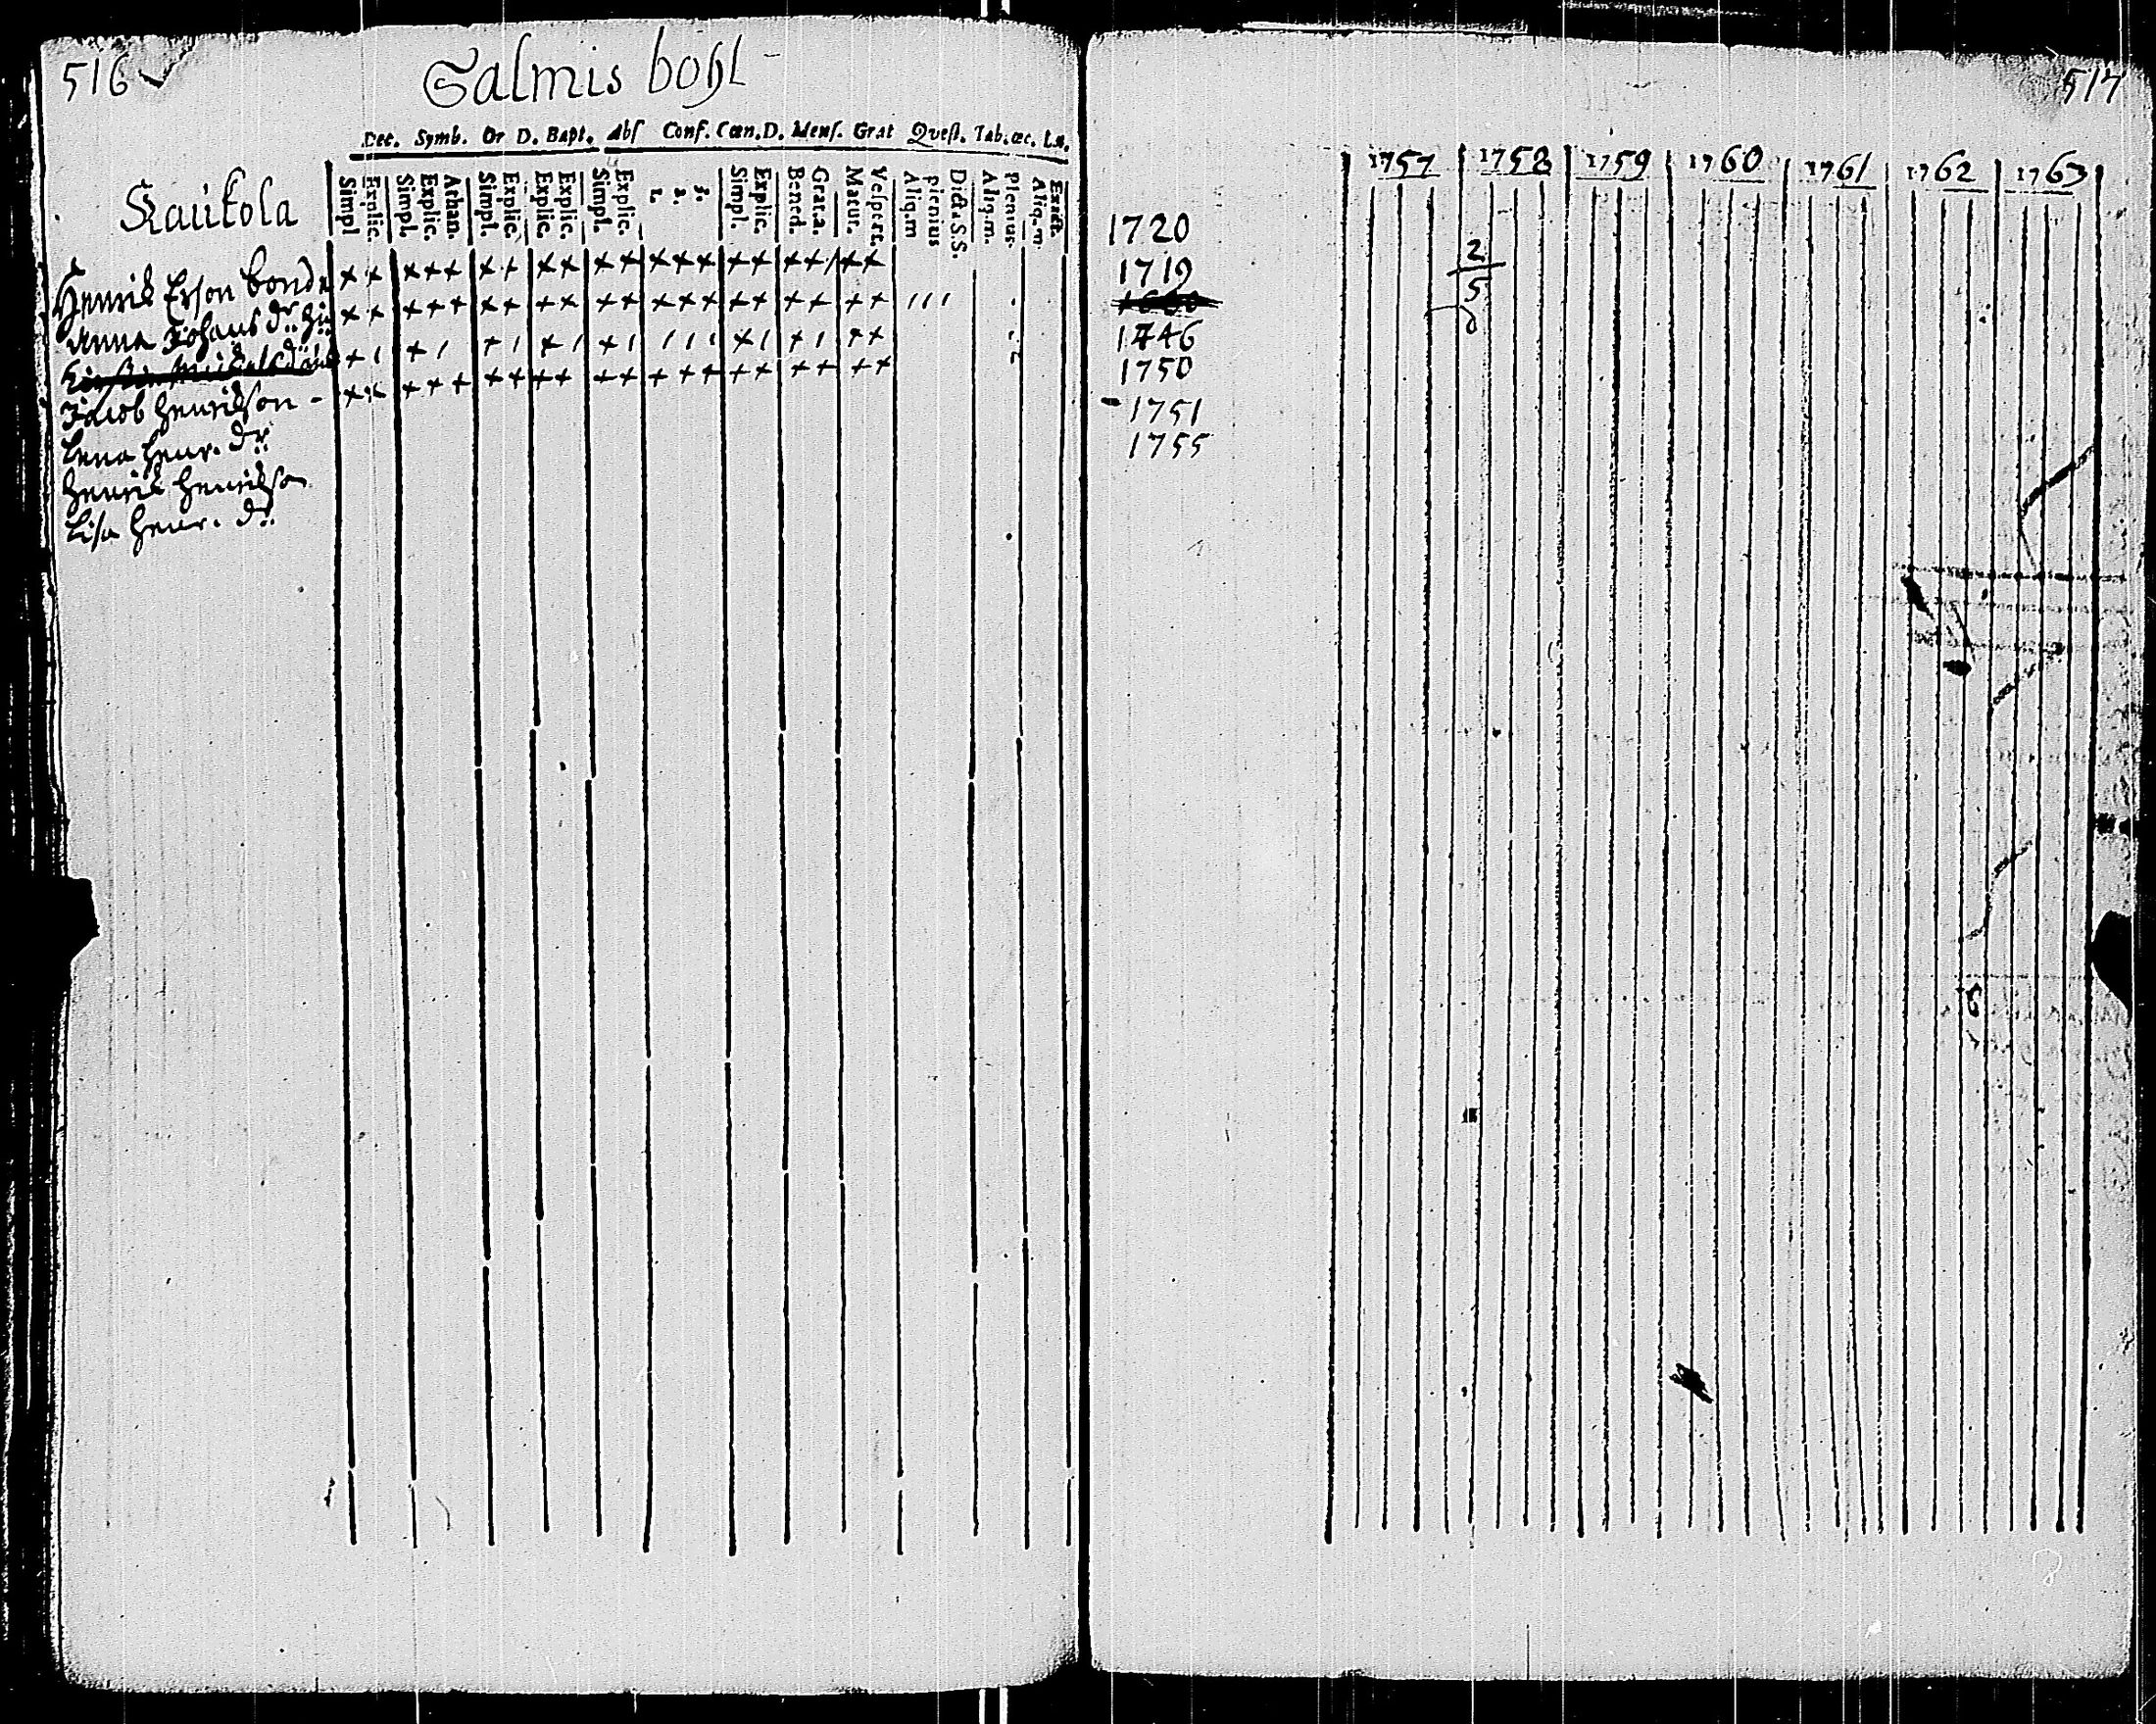 516
Salmis bohl
Dec. Symb. Or D. Bapt. Abs Conf. Cœn.D. Mens. Grat Quest. Tab.œc. L.n.
Simpl. Explic. Simpl. Explic. Athan. Simpl. Explic. Explic. Explic. Simpl. Explic. 1. 2. 3. Simpl. Explic. Bened. Grat.a. Matut. Vespert. Aliq.m plenius Dict.S.S. Aliq.m. plenius. Aliq.m. Exact.
Kaukola
Henrik Erson bonde
Anna Johans dr hu
Jacob Henrikson -
Lena Henr. dr
Henrik Henrikson
Lisa Henr. dr
517
1757 1758 1759 1760 1761 1762 1763
1720
1719
2
5
1746
1750
1751
1755